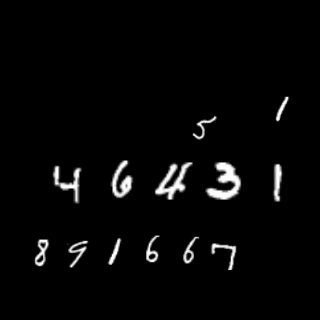 1
5
46431
891667